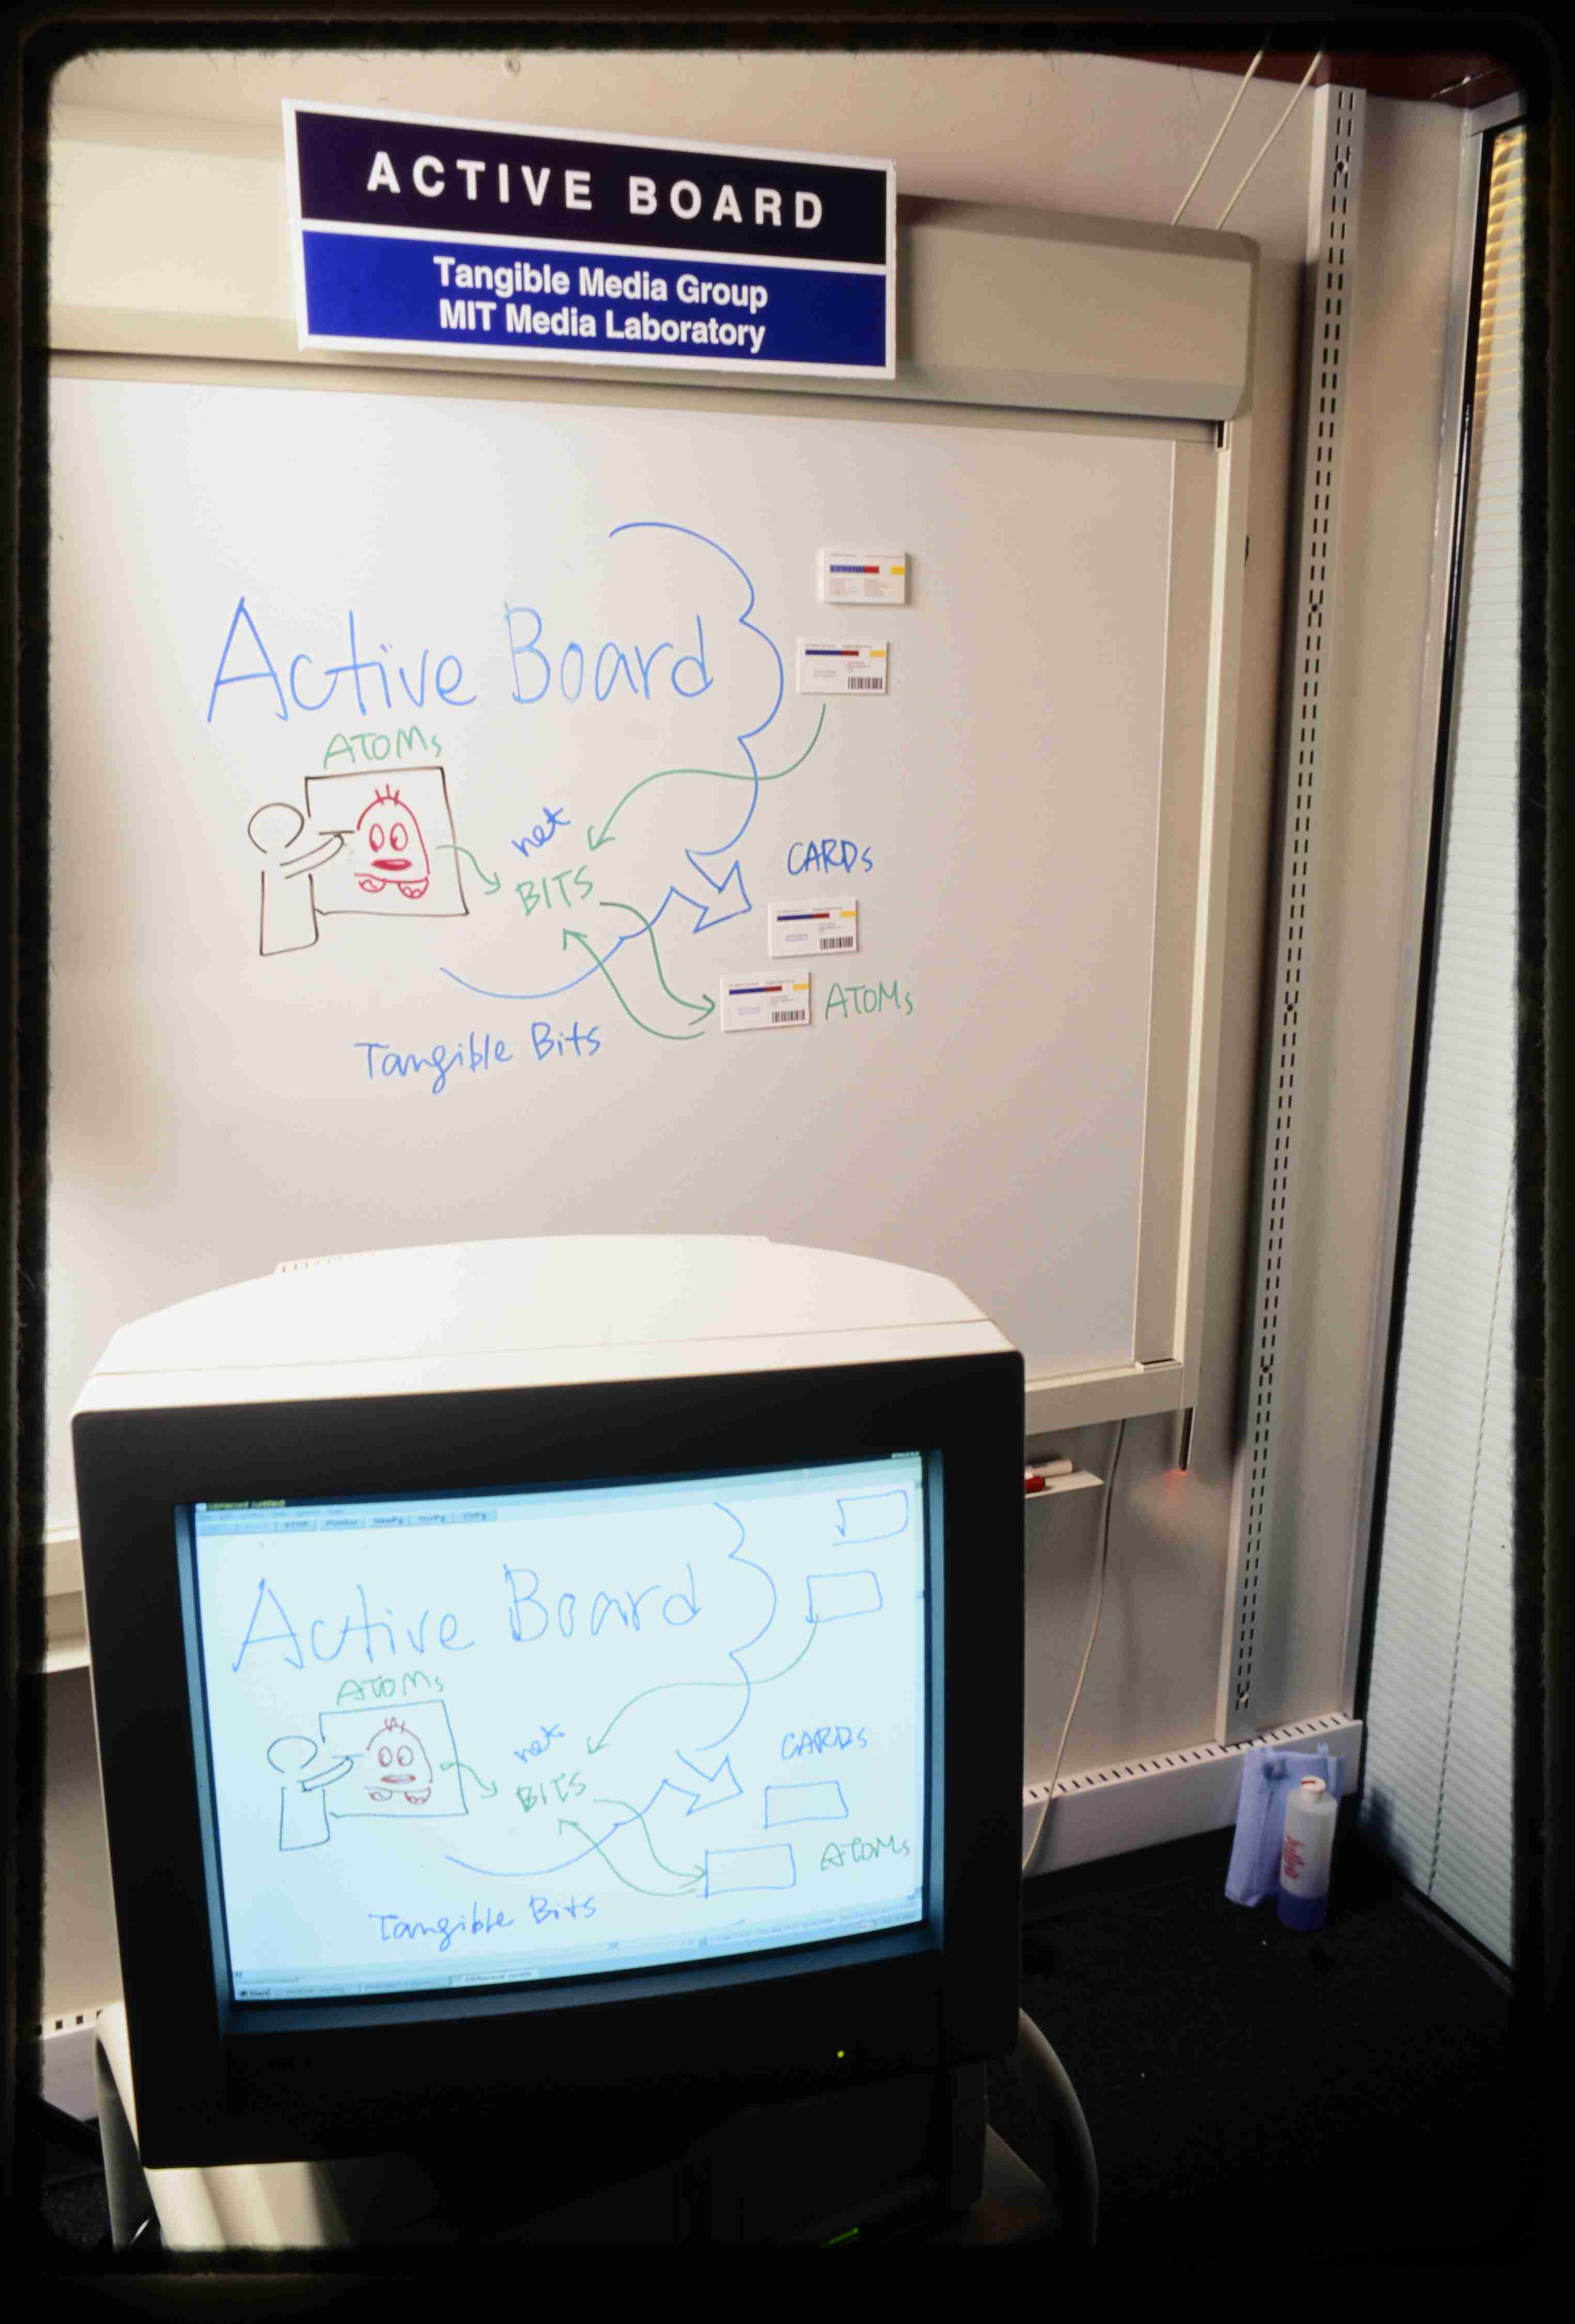 ACTIVE BOARD
Tangible Media Group
MIT Media Laboratory
Active Board
ATOMs
net
BITS
CARDs
ATOMs
Tangible Bits
STOP
Active Board
ATOMs
net
BITS
CARDs
ATOMs
Tangible Bits
Start